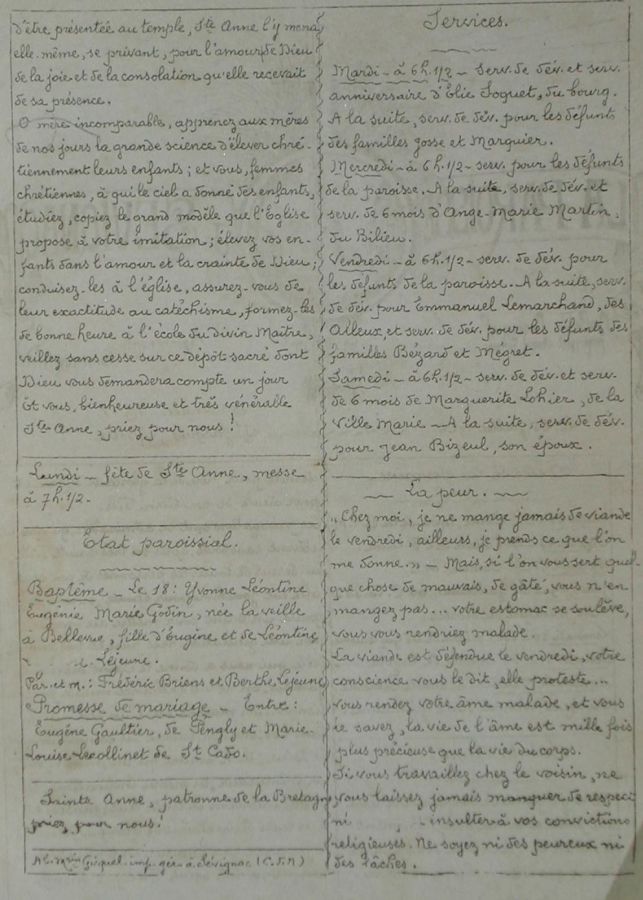 d'être présentée au temple, Ste Anne l'y mena
elle-même, se privant, pour l'amour de Dieu
de la joie et de la consolation qu'elle recevait
de sa présence.
O mère incomparable, apprenez aux mères
de nos jours la grande science d'élever chré-
tiennement leurs enfants ; et vous, femmes
chrétiennes, à qui le ciel a donné des enfants,
étudiez, copiez le grand modèle que l'Eglise
propose à votre imitation ; élevez vos en-
fants dans l'amour et la crainte de Dieu ;
conduisez-les à l'église, assurez-vous de
leur exactitude au catéchisme, formez-les
de bonne heure à l'école du divin Maître,
veillez sans cesse sur ce dépôt sacré dont
Dieu vous demandera compte un jour
Et vous, bienheureuse et très vénérable
Ste Anne, priez pour nous !
Lundi - fête de Ste Anne, messe
à 7h.1/2.
Etat paroissial.
Baptême - Le 18 : Yvonne Léontine
Eugénie Marie Godin, née la veille
à Bellevue, fille d'Eugène et de Léontine
Lejeune.
Par. et m. : Frédéric Briens et Berthe Lejeune
Promesse de mariage - Entre :
Eugène Gaultier, de Pengly et Marie-
Louise Lecollinet de St Cado.
Sainte Anne, patronne de la Bretagne
priez pour nous !
Al. Mtin Gicquel imp. gér. à Sévignac (C.d.N)
Services.
Mardi - à 6h.1/2 - serv. de dév. et serv.
anniversaire d'Elie Soquet, du bourg.
A la suite, serv. de dév. pour les défunts
des familles Gosse et Marquier.
Mercredi - à 6h.1/2 - serv. pour les défunts
de la paroisse. A la suite, serv. de dév. et
serv. de 6 mois d'Ange-Marie Martin,
du Bilieu.
Vendredi - à 6h.1/2 - serv. de dév. pour
les défunts de la paroisse. - A la suite, serv.
de dév. pour Emmanuel Lemarchand, des
Alleux, et serv. de dév. pour les défunts des
familles Bézard et Mégret.
Samedi - à 6h.1/2 - serv. de dév. et serv.
de 6 mois de Marguerite Lohier, de la
Ville Marie - A la suite, serv. de dév.
pour Jean Bizeul, son époux.
La peur.
"Chez moi, je ne mange jamais de viande
le vendredi, ailleurs, je prends ce que l'on
me donne." - Mais, si l'on vous sert quel-
que chose de mauvais, de gâté, vous n'en
mangez pas... votre estomac se soulève,
vous vous rendriez malade.
La viande est défendue le vendredi, votre
conscience vous le dit, elle proteste...
vous rendez votre âme malade, et vous
le savez, la vie de l'âme est mille fois
plus précieuse que la vie du corps.
Si vous travaillez chez le voisin, ne
vous laissez jamais manquer de respect
ni insulter à vos convictions
religieuses. Ne soyez ni des peureux ni
des lâches.